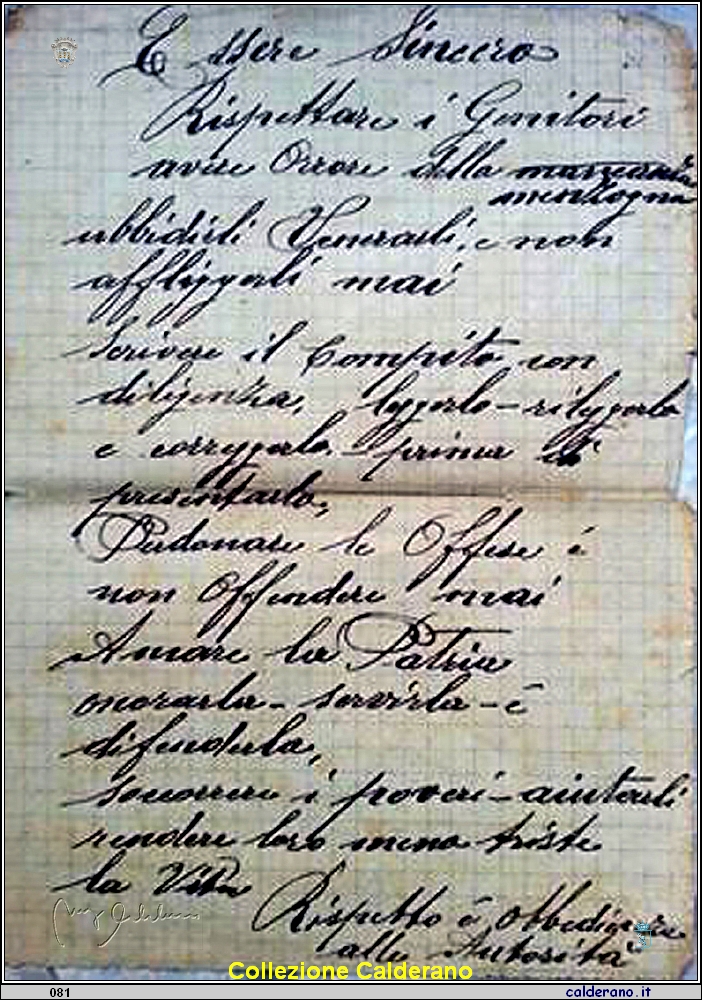 Essere Sincero
Rispettare i Genitori
avere Orrore della
menzogna
ubbidirli Venerarli, e non
affliggerli mai
Scrivere il Compito con
diligenza, leggerlo - rileggerlo
e correggerlo - prima di
presentarlo,
Perdonare le Offese é
non Offendere mai
Amare la Patria
onorarla - servirla - é
difenderla,
soccorrere i poveri - aiutarli
rendere loro meno triste
la Vita
Rispetto é obbedienza
alle Autorità
Collezione Calderano
081
calderano.it